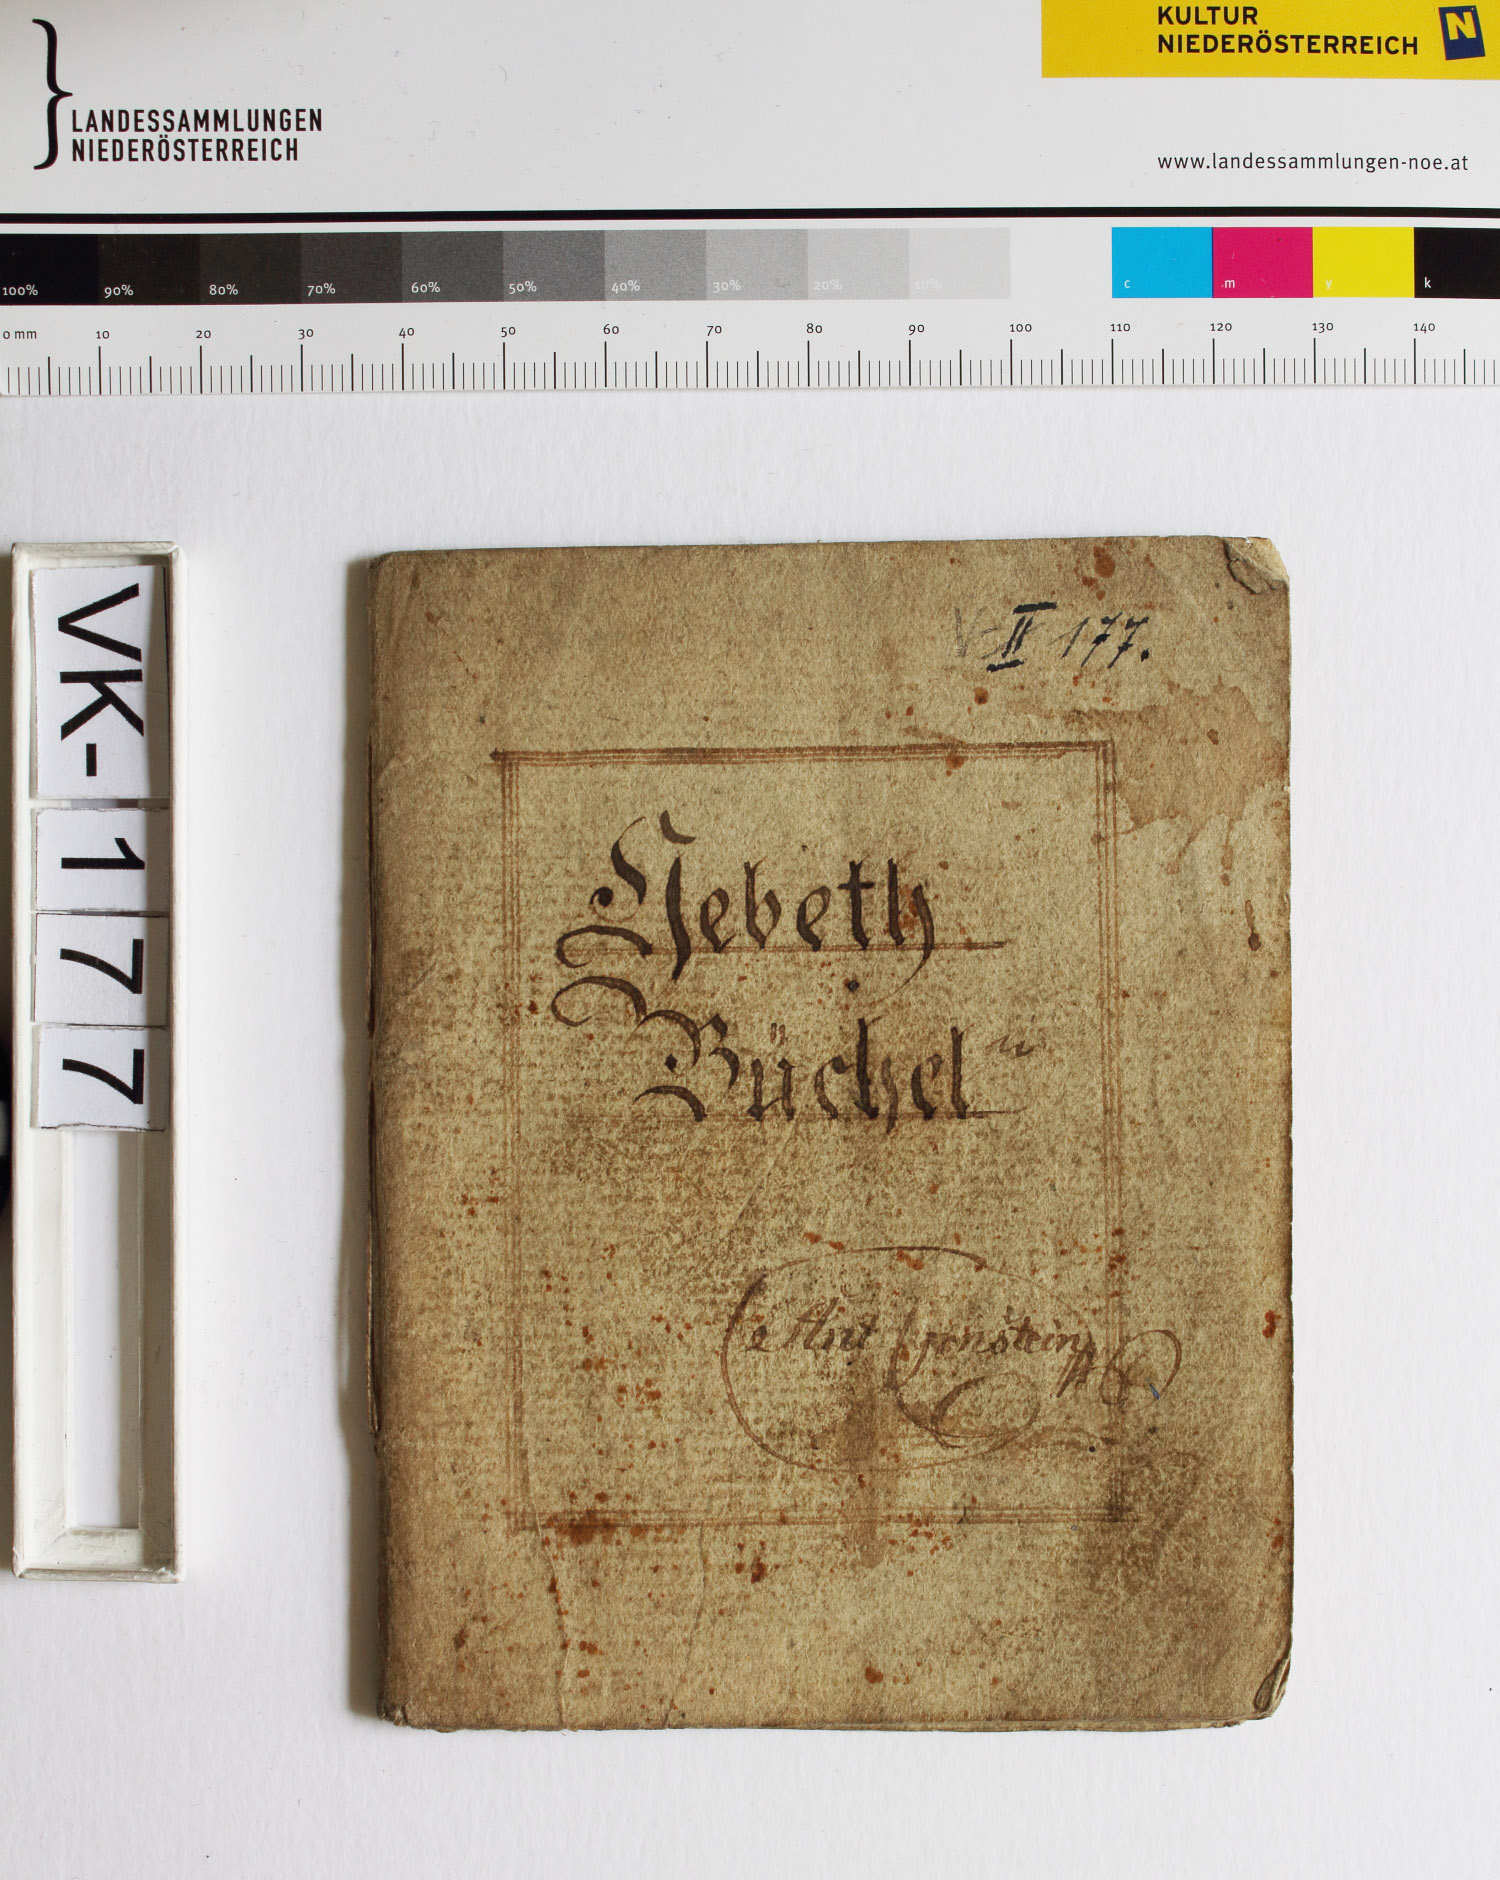 KULTUR
NIEDERÖSTERREICH
N
LANDESSAMMLUNGEN
NIEDERÖSTERREICH
www.landessammlungen-noe.at
100% 90% 80% 70% 60% 50% 40% 30% 20% 10% c m y k
0 mm 10 20 30 40 50 60 70 80 90 100 110 120 130 140
VK-1177
V= II 177.
Gebeth
Büchel
Ant